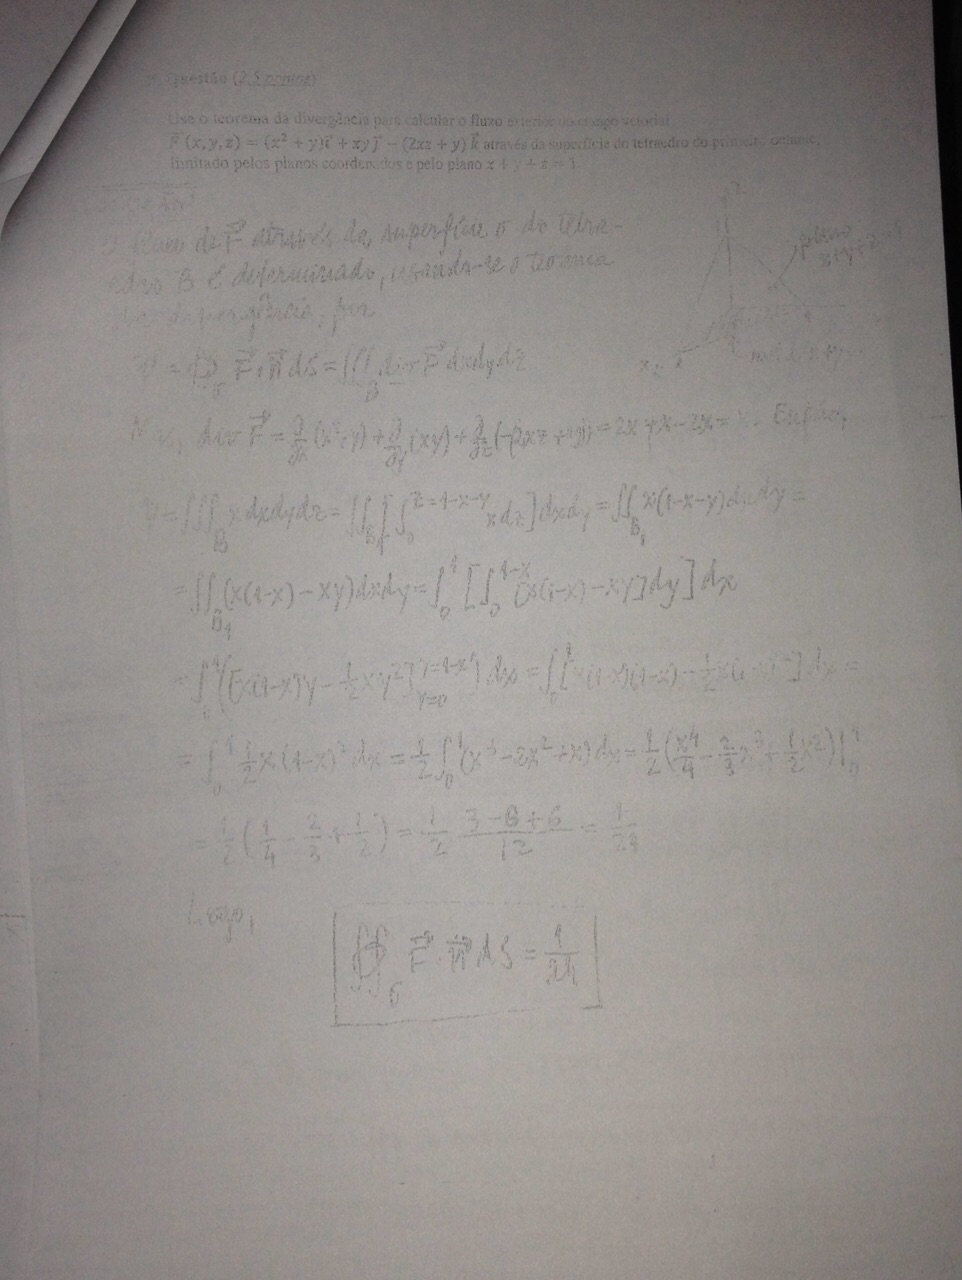 Questão (2,5 pontos)
Use o teorema da divergência para calcular o fluxo exterior do campo vetorial
F⃗ (x, y, z) = (x² + y)i⃗ + xy j⃗ − (2xz + y) k⃗ através da superfície do tetraedro do primeiro octante
limitado pelos planos coordenados e pelo plano x + y + z = 1.
z
plano
x+y+z=1
O fluxo de F⃗ através da superfície σ do tetra-
edro B é determinado, usando-se o teorema
da divergência, por
x
= ∯_σ F⃗ • n⃗ dS = ∭_B div F⃗ dxdydz
Mas, div F⃗ = ∂/∂x (x²+y) + ∂/∂y (xy) + ∂/∂z (-(2xz+y)) = 2x + x - 2x = x. Então,
= ∭_B x dxdydz = ∬_B₁ [∫_0^{z=1-x-y} x dz] dxdy = ∬_B₁ x(1-x-y) dxdy =
= ∬_B₁ (x(1-x) - xy) dxdy = ∫_0^1 [∫_0^{1-x} [x(1-x) - xy] dy] dx
= ∫_0^1 ([x(1-x)y - 1/2 xy²]_{y=0}^{y=1-x}) dx = ∫_0^1 [x(1-x)(1-x) - 1/2 x(1-x)²] dx =
= ∫_0^1 1/2 x (1-x)² dx = 1/2 ∫_0^1 (x³ - 2x² + x) dx = 1/2 (x⁴/4 - 2/3 x³ + 1/2 x²)|_0^1
= 1/2 (1/4 - 2/3 + 1/2) = 1/2 (3-8+6)/12 = 1/24
Logo,
∯_σ F⃗ • n⃗ dS = 1/24